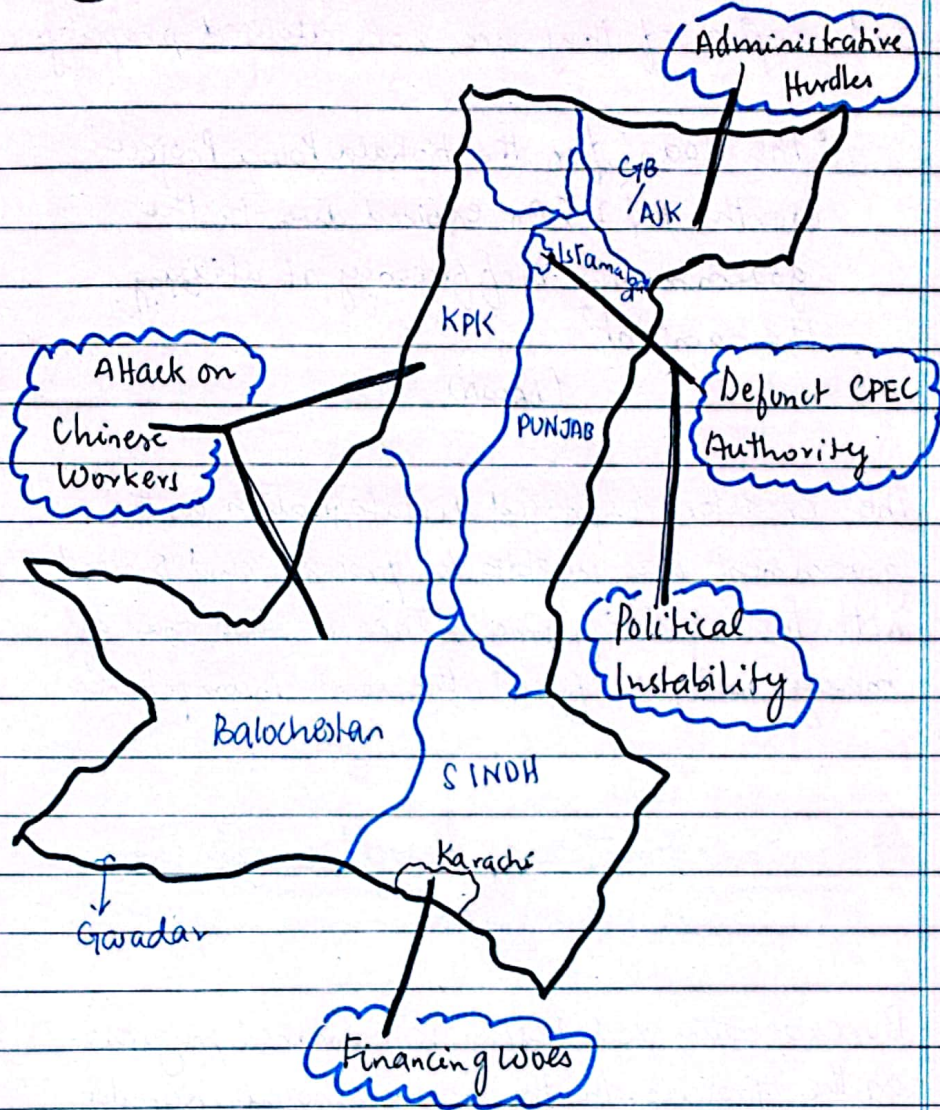 Administrative
Hurdles
GB
/
AJK
Islamabad
KPK
Attack on
Chinese
Workers
PUNJAB
Defunct CPEC
Authority
Political
Instability
Balochestan
SINDH
Karachi
Gwadar
Financing Woes